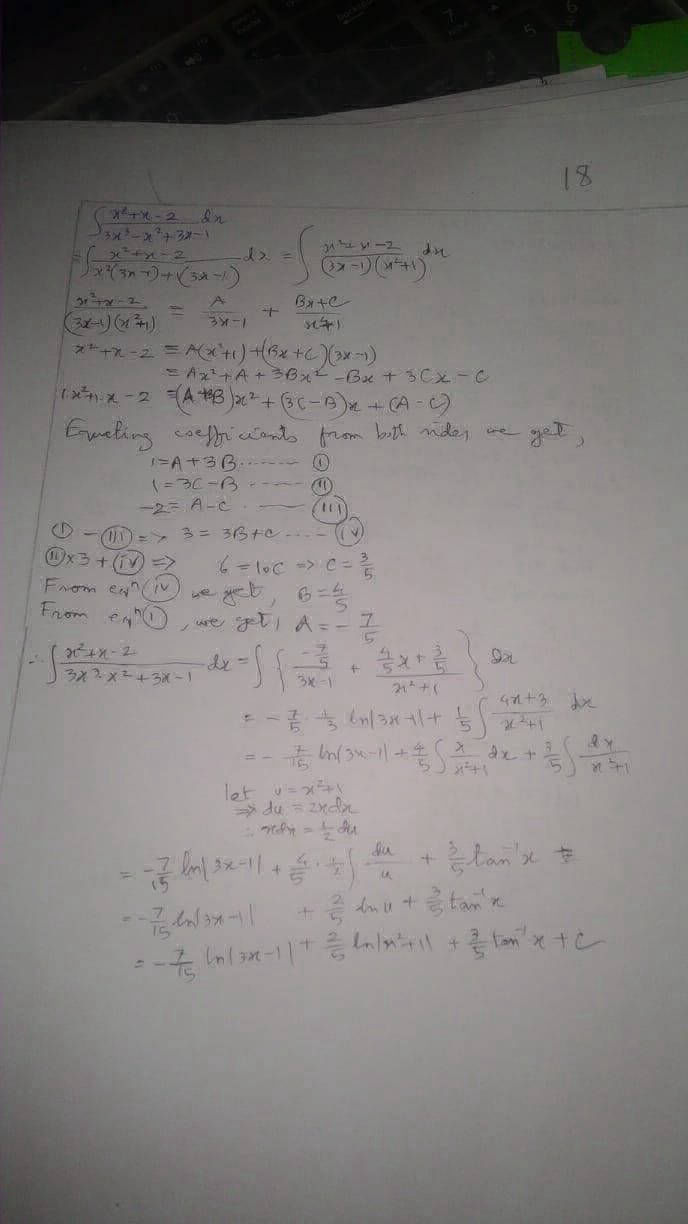 18
∫ x²+x-2 / 3x³-x²+3x-1 dx
= ∫ x²+x-2 / x²(3x-1)+1(3x-1) dx = ∫ x²+x-2 / (3x-1)(x²+1) dx
x²+x-2 / (3x-1)(x²+1) ≡ A / 3x-1 + Bx+C / x²+1
x²+x-2 ≡ A(x²+1)+(Bx+C)(3x-1)
≡ Ax²+A+3Bx²-Bx+3Cx-C
1.x²+1.x-2 ≡ (A+3B)x²+(3C-B)x+(A-C)
Equating coefficients from both sides we get,
1=A+3B ....... (I)
1=3C-B ....... (II)
-2=A-C ....... (III)
(I) - (III) => 3=3B+C .... (IV)
(II)×3+(IV) => 6=10C => C=3/5
From eqⁿ (IV) we get, B=4/5
From eqⁿ (I), we get, A=-7/5
∴ ∫ x²+x-2 / 3x³-x²+3x-1 dx = ∫ { -7/5 / 3x-1 + 4/5 x+3/5 / x²+1 } dx
= -7/5 · 1/3 ln|3x-1| + 1/5 ∫ 4x+3 / x²+1 dx
= -7/15 ln|3x-1| + 4/5 ∫ x / x²+1 dx + 3/5 ∫ dx / x²+1
let u=x²+1
=> du=2xdx
∴ xdx=1/2 du
= -7/15 ln|3x-1| + 4/5 · 1/2 ∫ du/u + 3/5 tan⁻¹x
= -7/15 ln|3x-1| + 2/5 ln u + 3/5 tan⁻¹x
= -7/15 ln|3x-1| + 2/5 ln|x²+1| + 3/5 tan⁻¹x + C